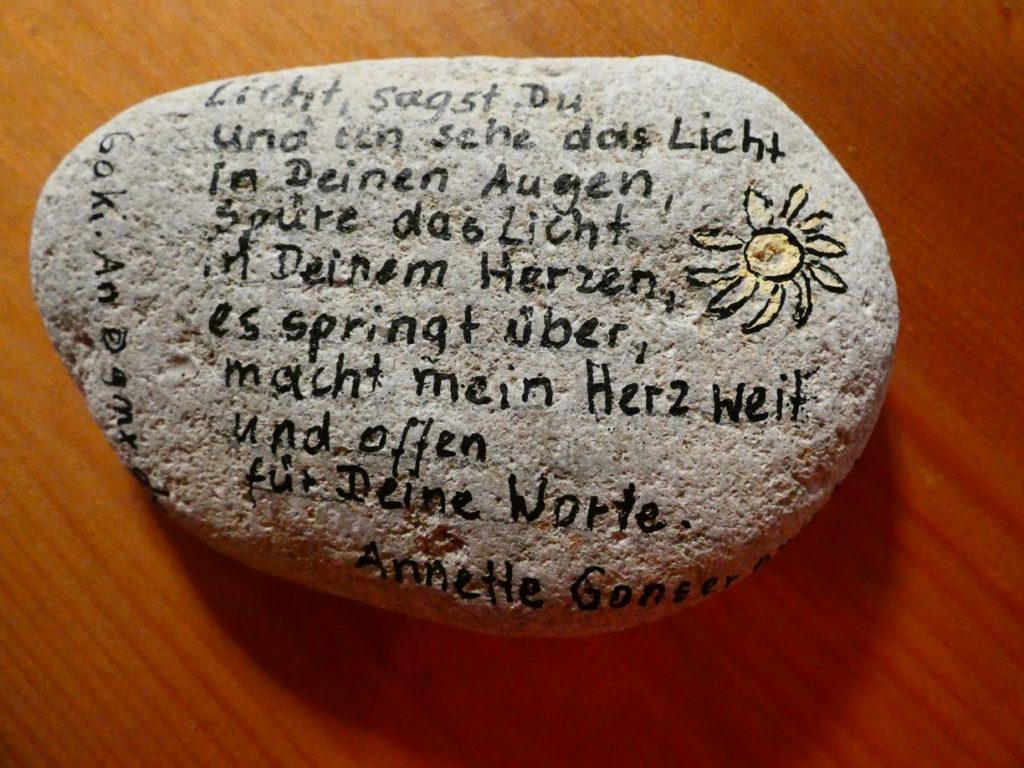 Licht, sagst Du
und ich sehe das Licht
in Deinen Augen,
spüre das Licht
in Deinem Herzen,
es springt über,
macht mein Herz weit
und offen
für Deine Worte.
Annette Gonser